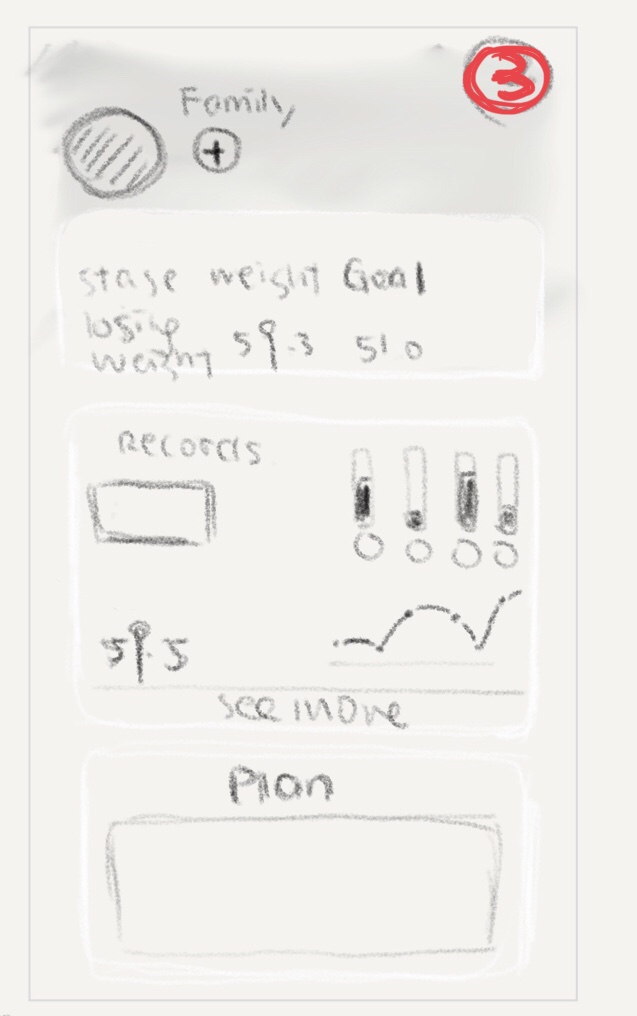 3
Family
+
stage weight Goal
losing
weight 59.3 51.0
Records
59.5
see more
Plan